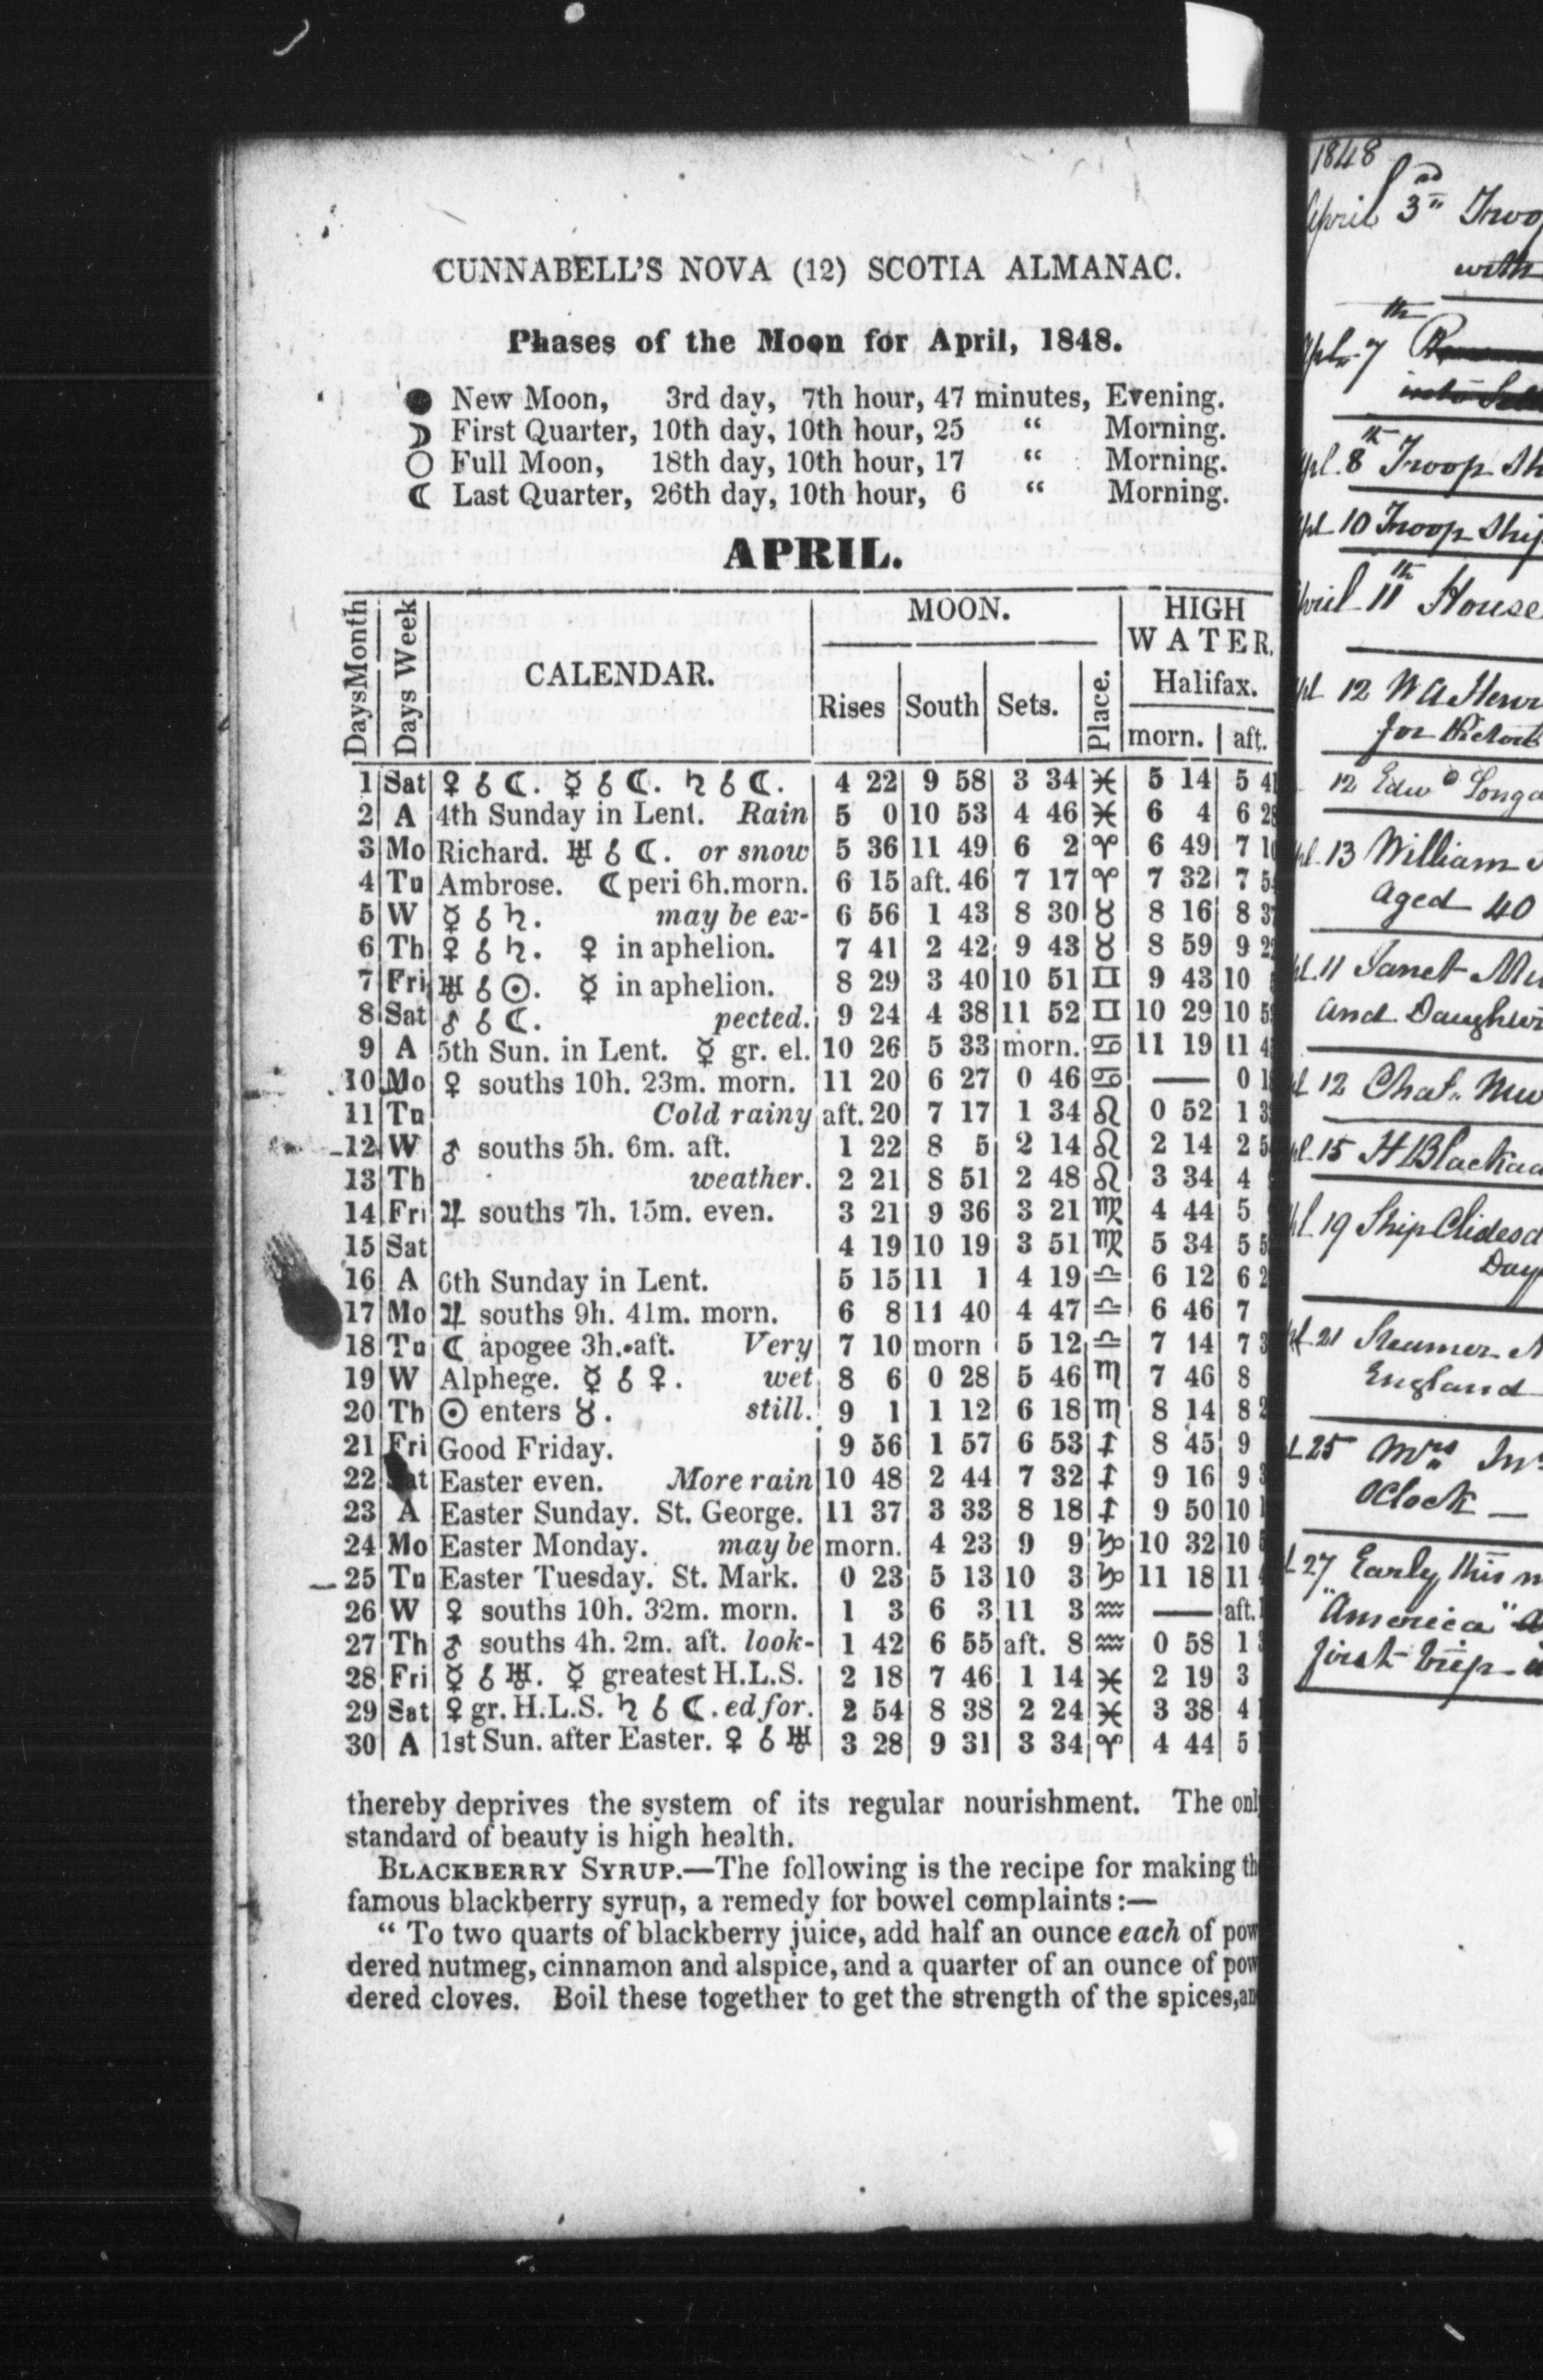 CUNNABELL'S NOVA (12) SCOTIA ALMANAC.
Phases of the Moon for April, 1848.
● New Moon, 3rd day, 7th hour, 47 minutes, Evening.
☽ First Quarter, 10th day, 10th hour, 25 “ Morning.
○ Full Moon, 18th day, 10th hour, 17 “ Morning.
☾ Last Quarter, 26th day, 10th hour, 6 “ Morning.
APRIL.
Days Month
Days Week
CALENDAR.
MOON.
Rises South Sets. Place.
HIGH
WATER.
Halifax.
morn. aft.
1 Sat ♀ ☌ ☾. ☿ ☌ ☾. ♄ ☌ ☾. 4 22 9 58 3 34 ♓ 5 14 5 41
2 A 4th Sunday in Lent. Rain 5 0 10 53 4 46 ♓ 6 4 6 28
3 Mo Richard. ♅ ☌ ☾. or snow 5 36 11 49 6 2 ♈ 6 49 7
4 Tu Ambrose. ☾ peri 6h. morn. 6 15 aft. 46 7 17 ♈ 7 32 7
5 W ☿ ☌ ♄. may be ex- 6 56 1 43 8 30 ♉ 8 16 8 37
6 Th ♀ ☌ ♄. ♀ in aphelion. 7 41 2 42 9 43 ♉ 8 59 9 22
7 Fri ♅ ☌ ☉. ☿ in aphelion. 8 29 3 40 10 51 ♊ 9 43 10
8 Sat ♂ ☌ ☾. pected. 9 24 4 38 11 52 ♊ 10 29 10
9 A 5th Sun. in Lent. ☿ gr. el. 10 26 5 33 morn. ♋ 11 19 11
10 Mo ♀ souths 10h. 23m. morn. 11 20 6 27 0 46 ♋ — 0
11 Tu Cold rainy aft. 20 7 17 1 34 ♌ 0 52 1
12 W ♂ souths 5h. 6m. aft. 1 22 8 5 2 14 ♌ 2 14 2
13 Th weather. 2 21 8 51 2 48 ♌ 3 34 4
14 Fri ♃ souths 7h. 15m. even. 3 21 9 36 3 21 ♍ 4 44 5
15 Sat 4 19 10 19 3 51 ♍ 5 34 5
16 A 6th Sunday in Lent. 5 15 11 1 4 19 ♎ 6 12 6
17 Mo ♃ souths 9h. 41m. morn. 6 8 11 40 4 47 ♎ 6 46 7
18 Tu ☾ apogee 3h. aft. Very 7 10 morn 5 12 ♎ 7 14 7
19 W Alphege. ☿ ☌ ♀. wet 8 6 0 28 5 46 ♏ 7 46 8
20 Th ☉ enters ♉. still. 9 1 1 12 6 18 ♏ 8 14 8
21 Fri Good Friday. 9 56 1 57 6 53 ♐ 8 45 9
22 Sat Easter even. More rain 10 48 2 44 7 32 ♐ 9 16 9
23 A Easter Sunday. St. George. 11 37 3 33 8 18 ♐ 9 50 10
24 Mo Easter Monday. may be morn. 4 23 9 9 ♑ 10 32 10
25 Tu Easter Tuesday. St. Mark. 0 23 5 13 10 3 ♑ 11 18 11
26 W ♀ souths 10h. 32m. morn. 1 3 6 3 11 3 ♒ — aft.
27 Th ♂ souths 4h. 2m. aft. look- 1 42 6 55 aft. 8 ♒ 0 58 1
28 Fri ☿ ☌ ♅. ☿ greatest H.L.S. 2 18 7 46 1 14 ♓ 2 19 3
29 Sat ♀ gr. H.L.S. ♄ ☌ ☾. ed for. 2 54 8 38 2 24 ♓ 3 38 4
30 A 1st Sun. after Easter. ♀ ☌ ♅ 3 28 9 31 3 34 ♈ 4 44 5
thereby deprives the system of its regular nourishment. The onl
standard of beauty is high health.
BLACKBERRY SYRUP.—The following is the recipe for making th
famous blackberry syrup, a remedy for bowel complaints:—
“ To two quarts of blackberry juice, add half an ounce each of pow
dered nutmeg, cinnamon and alspice, and a quarter of an ounce of pow
dered cloves. Boil these together to get the strength of the spices, an
1848
April 3rd Troo
with
Apl. 7th
into
Apl. 8th Troop Sh
Apl 10 Troop Ship
April 11th House
Apl 12 W A
for
12 Edwd
Apl. 13 William
aged 40
Apl. 11 Janet
and Daughter
Apl 12 Chas.
Apl. 15 H Blackad
Apl. 19 Ship
Day
Apl. 21 Steamer
England
25 Mrs
OClock —
27 Early this
"America"
first trip